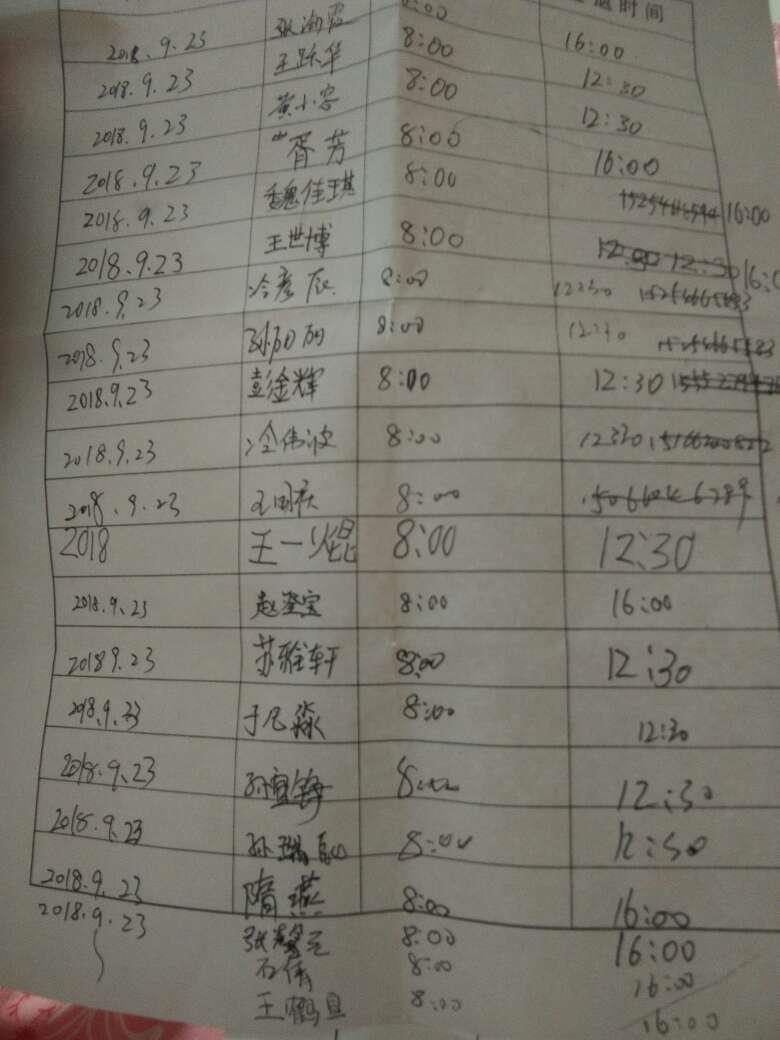 退时间
2018.9.23 张 8:00 16:00
2018.9.23 王跃华 8:00 12:30
2018.9.23 黄小容 8:00 12:30
2018.9.23 胥芳 8:00 16:00
2018.9.23 魏佳琪 8:00 16:00
2018.9.23 王世博 8:00 12:30
2018.9.23 冷彦辰 8:00 12:30
2018.9.23 孙 8:00 12:30
2018.9.23 彭金辉 8:00 12:30
2018.9.23 冷伟波 8:00 12:30
2018.9.23 王国庆 8:00
2018 王一焜 8:00 12:30
2018.9.23 赵 宝 8:00 16:00
2018 9.23 苏雅轩 8:00 12:30
2018.9.23 于凡淼 8:00 12:30
2018.9.23 孙 8:00 12:30
2018.9.23 孙瑞 8:00 12:30
2018.9.23 隋燕 8:00 16:00
2018.9.23 张馨元 8:00 16:00
石倩 8:00 16:00
王鹤 8:00 16:00